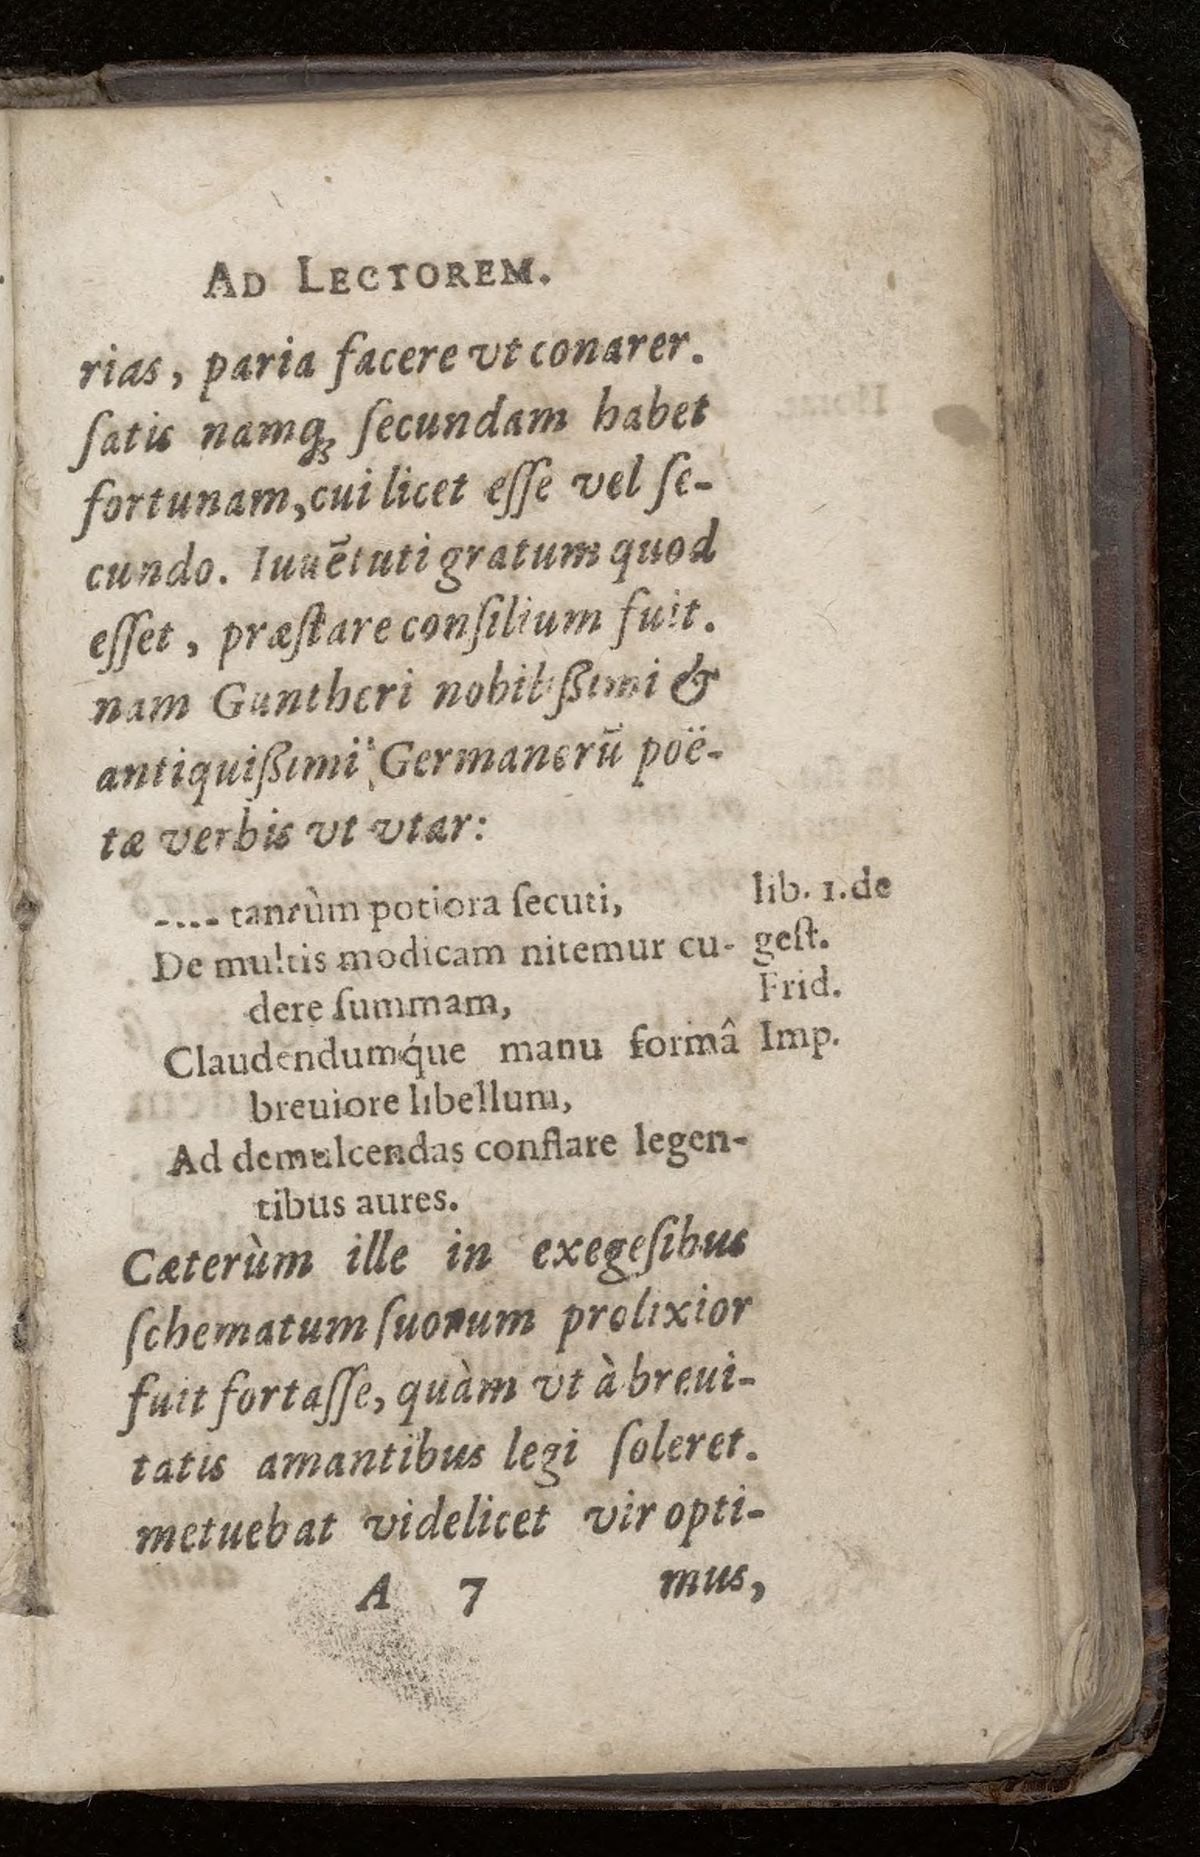 AD LECTOREM.
rias, paria facere vt conarer.
ſatis namq; ſecundam habet
fortunam, cui licet eſſe vel ſe-
cundo. Iuuētuti gratum quod
eſſet, præſtare conſilium fuit.
nam Guntheri nobilißimi &
antiquißimi Germanorū poë-
tæ verbis vt vtar:
---- tantùm potiora ſecuti,
lib. 1. de
De multis modicam nitemur cu-
geſt.
dere ſummam,
Frid.
Claudendumq́ue manu formâ
Imp.
breuiore libellum,
Ad demulcendas conflare legen-
tibus aures.
Cæterùm ille in exegeſibus
ſchematum ſuorum prolixior
fuit fortaſſe, quàm vt à breui-
tatis amantibus legi ſoleret.
metuebat videlicet vir opti-
A 7
mus,